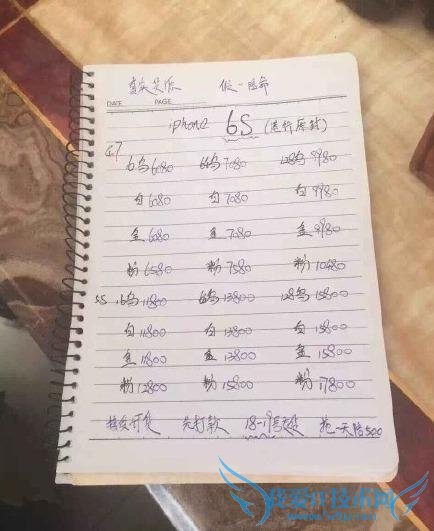 真实货源 假一赔命
DATE PAGE
iphone 6S (送行原封)
4.7 16乌6080 64乌7080 128乌9980
白6080 白7080 白9980
金6080 金7080 金9980
粉6580 粉7580 粉10480
5.5 16乌11800 64乌13800 128乌15800
白11800 白13800 白15800
金11800 金13800 金15800
粉12800 粉15800 粉17800
接受订货 先打款 18-19号发货 拖一天赔500